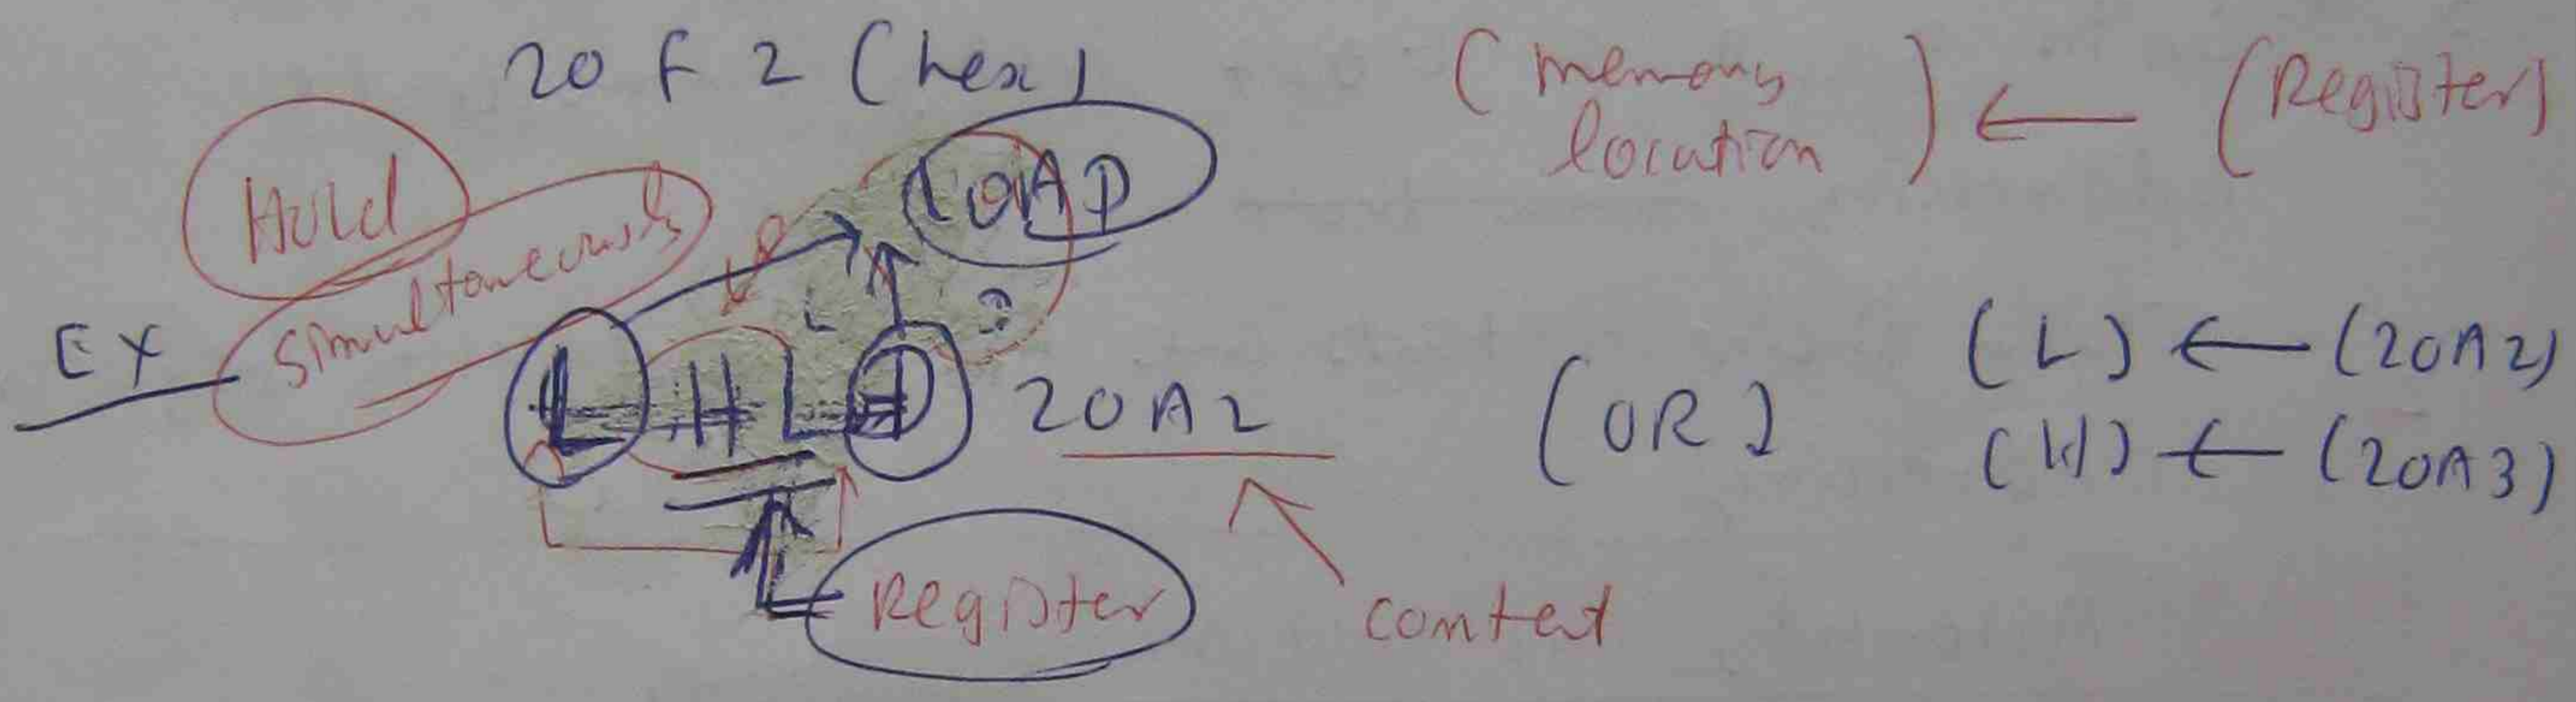 20 F 2 (hex)
(memory location) ← (Register)
Hold
LOAD
Simultaneously
EX
LHLD 20A2 (OR) (L) ← (20A2)
(H) ← (20A3)
Register
contet